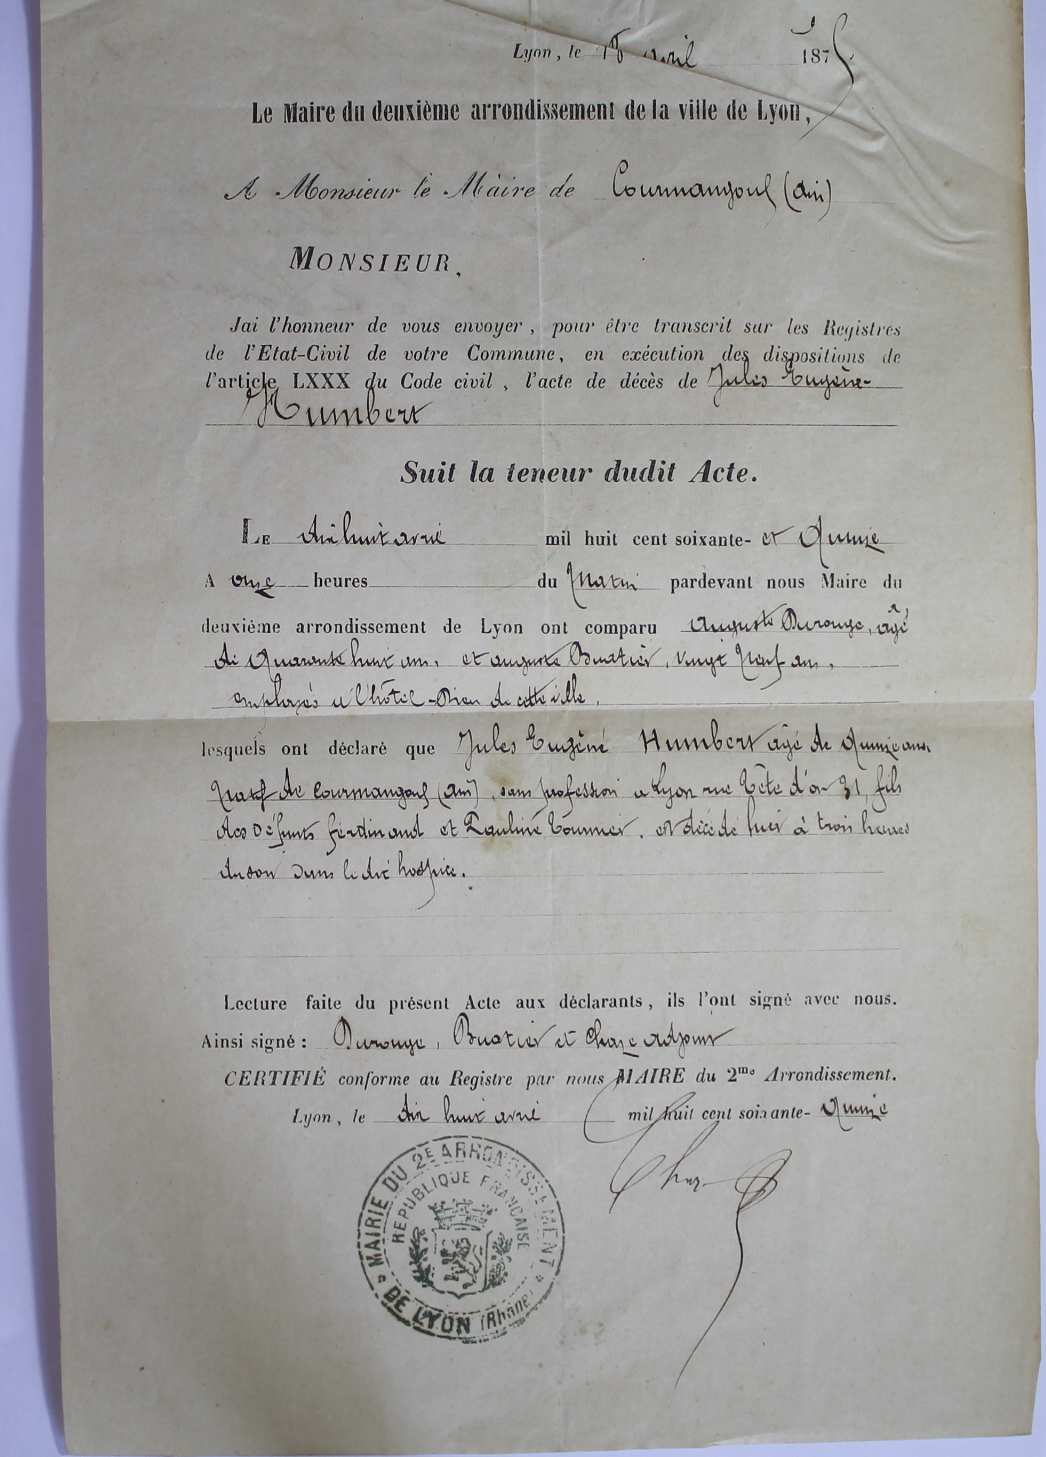 Lyon, le 18 avril 1875
Le Maire du deuxième arrondissement de la ville de Lyon,
A Monsieur le Maire de Courmangoux (Ain)
MONSIEUR,
Jai l'honneur de vous envoyer, pour être transcrit sur les Registres
de l'Etat-Civil de votre Commune, en exécution des dispositions de
l'article LXXX du Code civil, l'acte de décès de Jules Eugène
Humbert
Suit la teneur dudit Acte.
LE dix huit avril mil huit cent soixante- et Quinze
A onze heures du Matin pardevant nous Maire du
deuxième arrondissement de Lyon ont comparu Auguste Durouge, âgé
de Quarante huit ans, et auguste Buatier, vingt Neuf ans,
employés à l'hôtel-Dieu de cette ville,
lesquels ont déclaré que Jules Eugène Humbert âgé de Quinze ans
Natif de Courmangoux (Ain), sans profession à Lyon rue Tête d'or 31, fils
des Défunts ferdinand et Pauline Tournier, est décédé hier à trois heures
du soir dans le dit hospice.
Lecture faite du présent Acte aux déclarants, ils l'ont signé avec nous.
Ainsi signé : Durouge, Buatier et Chaze adjoint
CERTIFIÉ conforme au Registre par nous MAIRE du 2me Arrondissement.
Lyon, le dix huit avril mil huit cent soixante- Quinze
MAIRIE DU 2E ARRONDISSEMENT
RÉPUBLIQUE FRANÇAISE
DE LYON (Rhône)